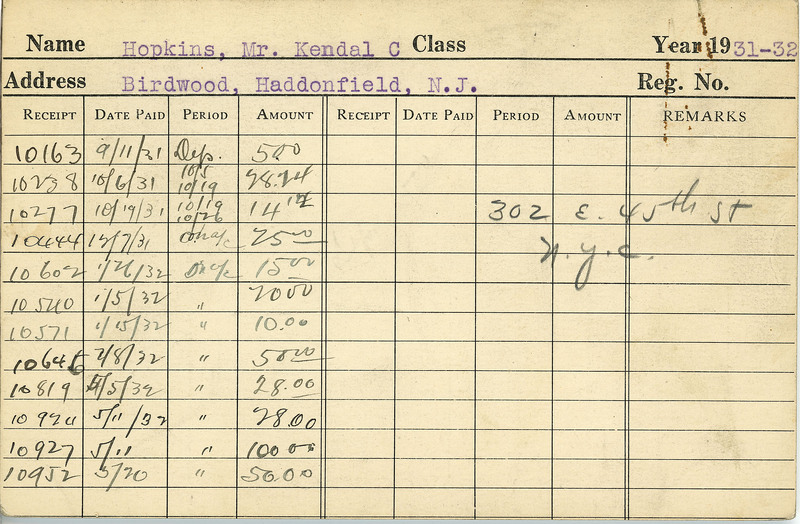 Name Hopkins, Mr. Kendal C Class Year 1931-32
Address Birdwood, Haddonfield, N.J. Reg. No.
RECEIPT DATE PAID PERIOD AMOUNT RECEIPT DATE PAID PERIOD AMOUNT REMARKS
10163 9/11/31 Dep. 500
10238 10/6/31 10/5 10/19 28.24
10277 10/19/31 10/19 10/26 14 302 E. 45th St
10444 12/7/31 2500 N.Y.C.
10602 1/26/32 1500
10540 1/5/32 " 2000
10571 1/15/32 " 10.00
10645 2/8/32 " 5000
10819 4/5/32 " 28.00
10920 5/11/32 " 28.00
10927 5/11 " 100 00
10952 5/20 " 50.00